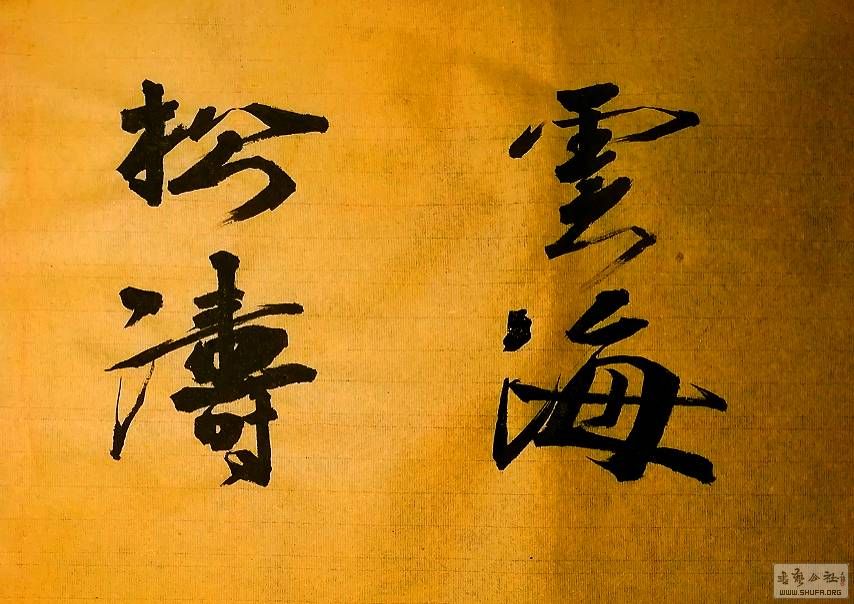 雲海
松濤
書艺公社
WWW.SHUFA.ORG